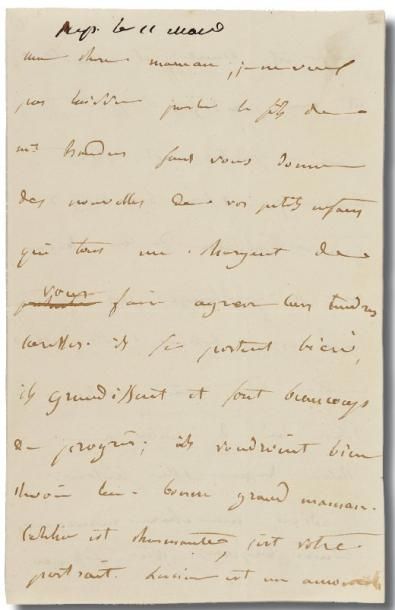 le 11 mars
ma chere maman, je ne veux
pas laisser partir le fils de
mr sans vous donner
des nouvelles de vos petits enfans
qui tous me chargent de
vous faire agreer leurs tendres
caresses. ils se portent bien,
ils grandissent et font beaucoup
de progrès; ils voudroient bien
revoir leur bonne grand maman.
est charmante, c'est votre
portrait. Lucien est un amour